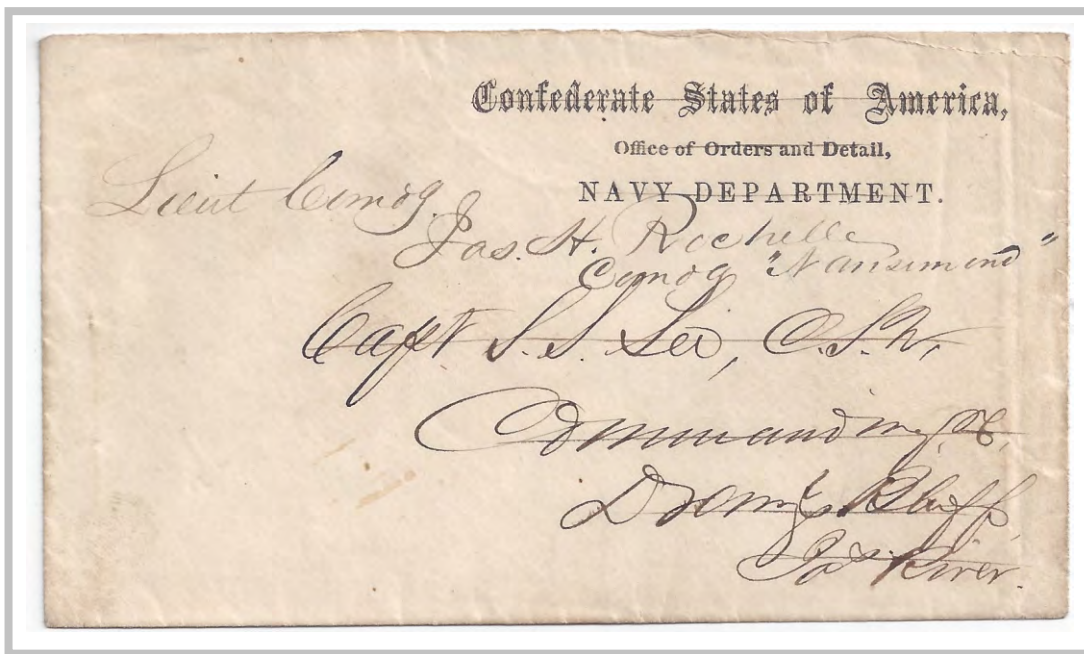 Confederate States of America,
Office of Orders and Detail,
NAVY DEPARTMENT.
Lieut Comdg.
Jas. H. Rochelle
Comdg "Nansemond"
Capt S. S. Lee, C.S.N.
Commanding &c,
Drewrys Bluff,
Jas River.